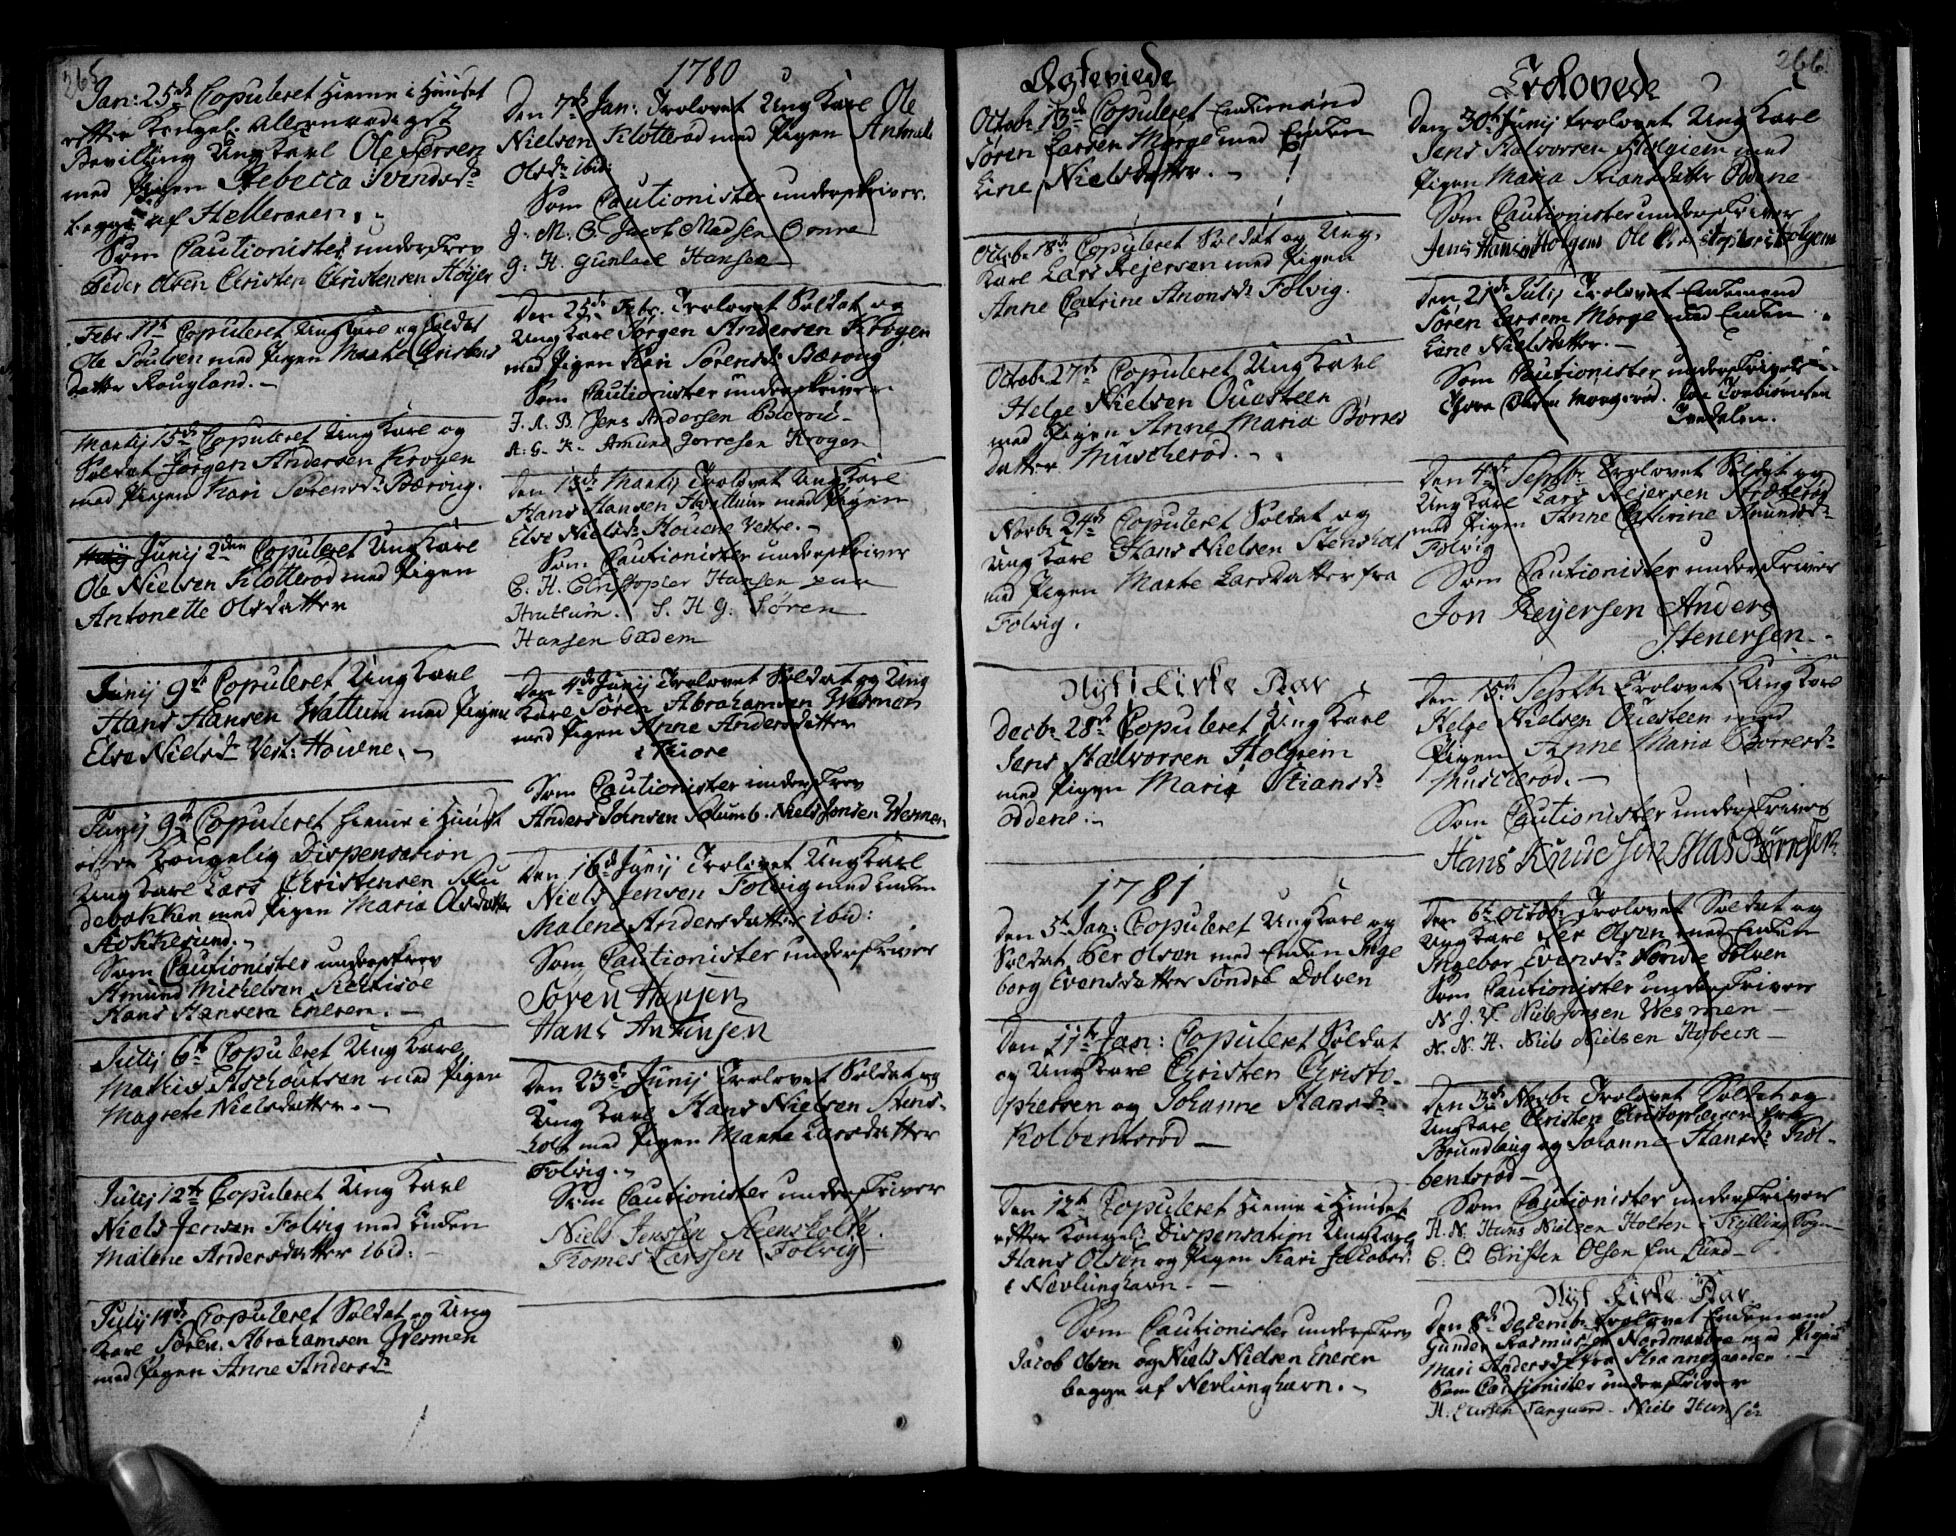 265
Jan: 25de Copuleret hieme i Huuset
efter Kongel. Allernaadigst
Bevilling Ungkarl Ole Persen
med Pigen Rebecca Svendsdr
begge af Helleranen.
Som Cautionister underskrev
Peder Olsen Christen Christensen Höyer
Febr. 11te Copuleret Ungkarl og Soldat
Ole Poulsen med Pigen Marthe Christens
datter Rougland.
Martij 15de Copuleret Ungkarl og
Soldat Jørgen Andersen Krogen
med Pigen Kari Sørensdr Bærøug.
Junij 2den Copuleret Ungkarl
Ole Nielsen Klotterød med Pigen
Antonette Olsdatter
Junij 9de Copuleret Ungkarl
Hans Hansen Wattum med Pigen
Else Nielsdr Vest: Houene.
Junij 9de Copuleret hieme i Huuset
efter Kongelig Dispensation
Ungkarl Lars Christensen Slu
debakken med Pigen Maria Olsdatter
Aokkesund.
Som Cautionister underskrev
Amund Michelsen
Hans Hansen Eneren.
Julij 6te Copuleret Ungkarl
Mathis Aschoutsen med Pigen
Magrete Nielsdatter.
Julij 12te Copuleret Ungkarl
Niels Jensen Folvig med Enken
Malene Andersdatter ibid:
Julij 14de Copuleret Soldat og Ung
karl Søren Abrahamsen Wesmen
med Pigen Anne Andersdr
1780
Den 7de Jan: Trolovet Ungkarl Ole
Nielsen Klotterød med Pigen Antonette
Olsdr ibid:
Som Cautionister underskriver.
J. M. O. Jacob Madsen Omre
G. H. Gunlach Hansen
Den 25de Febr. Trolovet Soldat og
Ungkarl Jørgen Andersen Krogen
med Pigen Kari Sørensdr Bærøug
Som Cautionister underskriver.
J. A. B. Jens Andersen Bierou
A. G. K. Amund Jorresen Krogen
Den 18de Martij Trolovet Ungkarl
Hans Hansen Hvattum med Pigen
Else Nielsdr Houene Vestre.
Som Cautionister underskriver
C. H. Christopher Hansen paa
Hvattum. S. H. G. Søren
Hansen Gadem
Den 4de Junij Trolovet Soldat og Ung
karl Søren Abrahamsen Wesmen
med Pigen Anne Andersdatter
i Kiøre
Som Cautionister underskrev
Anders Johnsen Solumb. Niels Jonsen Wesmen
Den 16de Junij Trolovet Ungkarl
Niels Jensen Folvig med Enken
Malene Andersdatter ibid:
Som Cautionister underskriver
Søren Hansen
Hans Antinsen
Den 23de Junij Trolovet Soldat og
Ungkarl Hans Nielsen Stens-
holt med Pigen Marthe Larsdatter
Folvig.
Som Cautionister underskriver
Niels Jenssen Steensholdt.
Tromes Larssen Folvig
Ægteviede
Octobr 13de Copuleret Enkemand
Søren Larsen Morge med Enken
Line Nielsdatter.
Octobr 18de Copuleret Soldat og Ung-
karl Lars Rejersen med Pigen
Anne Catrine Amonsdr Folvig.
Octobr 27de Copuleret Ungkarl
Helge Nielsen Ouesteen
med Pigen Anne Maria Børres
datter Muscherød.
Novbr 24de Copuleret Soldat og
Ungkarl Hans Nielsen Stensholt
med Pigen Marthe Larsdatter fra
Folvig.
Nyt Kirke Aar
Decbr 28de Copuleret Ungkarl
Jens Halvorsen Holgiem
med Pigen Maria Stiansdr
Oddene.
1781
Den 5te Jan: Copuleret Ungkarl og
Soldat Per Olsen med Enken Inge
borg Evensdatter Søndre Dolven
Den 11te Jan: Copuleret Soldat
og Ungkarl Christen Christo-
phersen og Johanne Hansdr
Kolbentsrød
Den 12te Copuleret hieme i Huuset
efter Kongel: Dispensation Ungkarl
Hans Olsen og Pigen Kari Jacobsdr
i Nevlunghavn.
Som Cautionister underskrev
Jacob Olsen og Niels Nielsen Eneren
begge af Nevlunghavn.
266
Trolovede
Den 30te Junij trolovet Ungkarl
Jens Halvorsen Holgiem med
Pigen Maria Stiansdatter Oddene
Som Cautionister underskriver
Jens Hansen Holgem Ole Christophersen Holgem
Den 21de Julij Trolovet Enkemand
Søren Larsen Morge med Enken
Line Nielsdatter.
Som Cautionister underskriver
Thore Olsen Morgerød. Jon Torbiørnsen
Tvedalen.
Den 4de Septbr Trolovet Soldat og
Ungkarl Lars Rejersen
med Pigen Anne Cathrine Amundsdr
Folvig
Som Cautionister underskriver
Jon Reyersen Anders
Stenersen
Den 15de Septbr Trolovet Ungkarl
Helge Nielsen Ouesteen med
Pigen Anne Maria Børresdr
Muscherød.
Som Cautionister underskriver
Hans Knudsen Mas Børresen
Den 6te Octobr Trolovet Soldat og
Ungkarl Per Olsen med Enken
Ingebor Evensdr Søndre Dolven
Som Cautionister underskriver
N. J. V. Niels Jonsen Wesmen
N. N. H. Niels Nielsen Hybeck
Den 3de Novbr Trolovet Soldat og
Ungkarl Christen Christophersen fra
Brundlaug og Johanne Hansdr Kol-
bentsrød
Som Cautionister underskriver
H. N. Hans Nielsen Holten i Kylling Sogn
C. O Christen Olsen fra Lund
Nyt Kirke Aar.
Den 8de Decembr Trolovet Enkemand
Gunder Rasmussen Nordmandro med Pigen
Mari Andersdr fra Strannegaarden
Som Cautionister underskriver
H. Larsen Tanguard. Niels Hansen